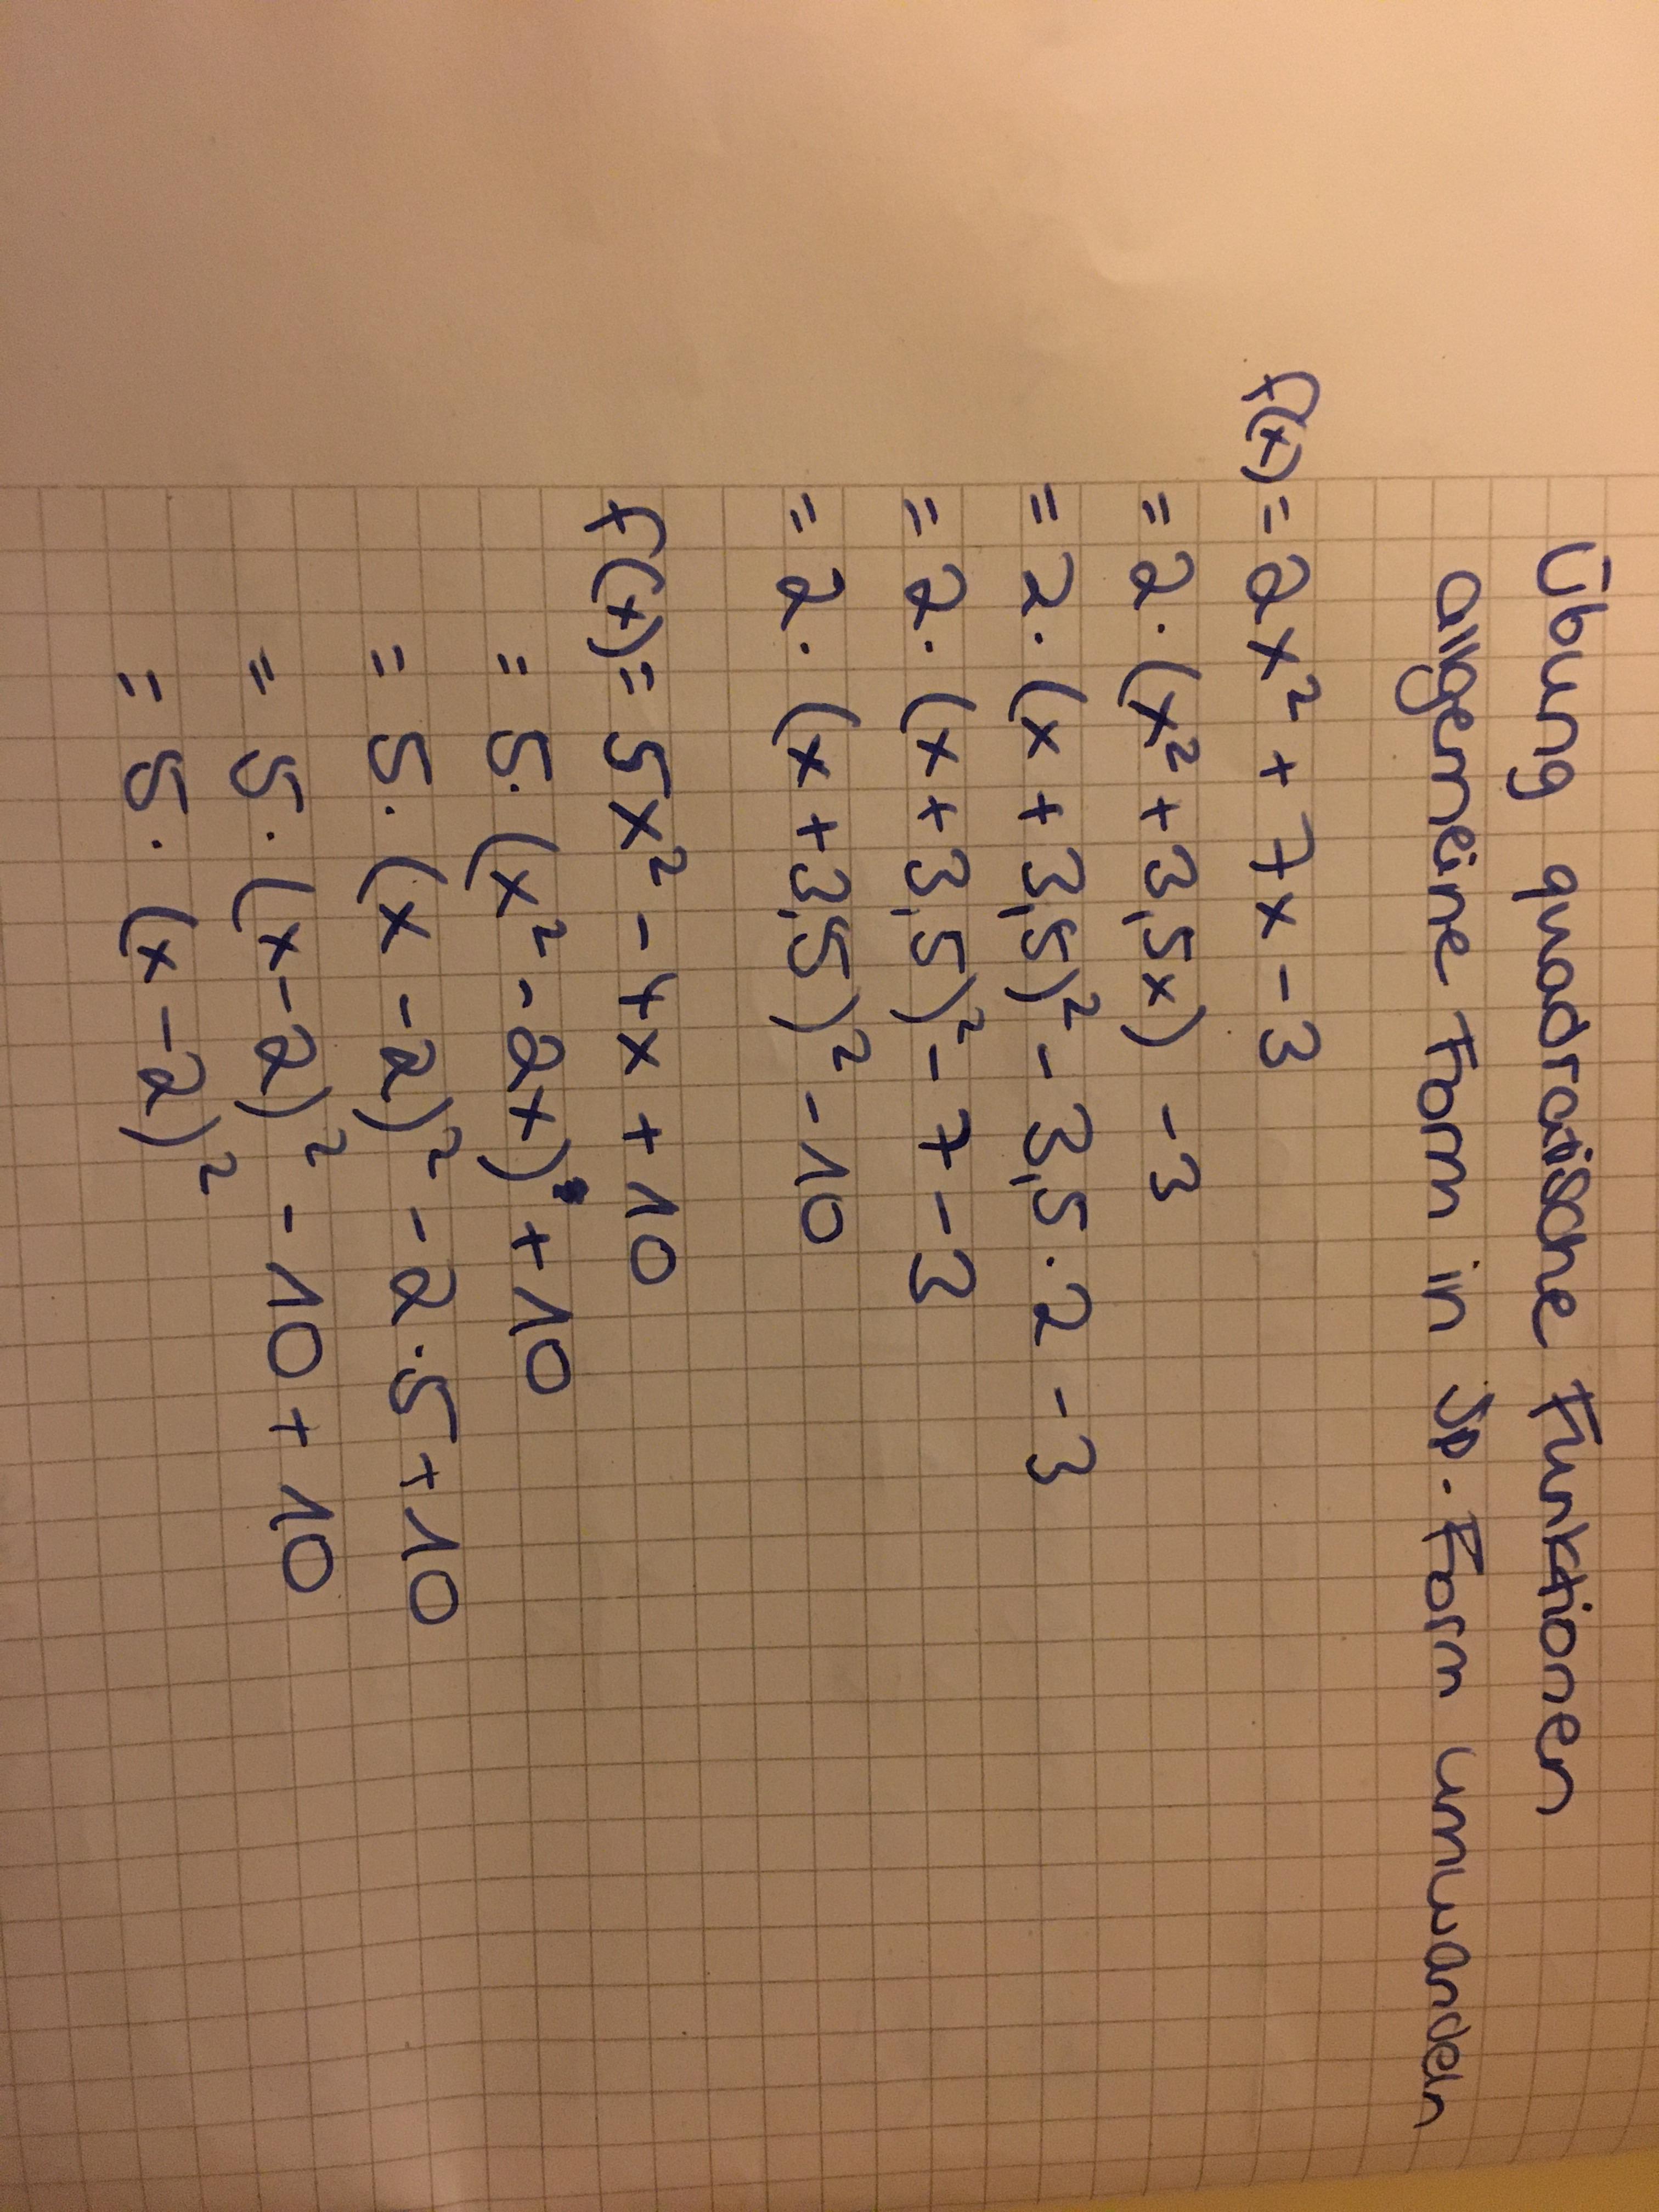 Übung quadratische Funktionen
allgemeine Form in Sp.-Form umwandeln
f(x) = 2x² + 7x - 3
= 2 · (x² + 3,5x) - 3
= 2 · (x + 3,5)² - 3,5 · 2 - 3
= 2 · (x + 3,5)² - 7 - 3
= 2 · (x + 3,5)² - 10
f(x) = 5x² - 4x + 10
= 5 · (x² - 2x) + 10
= 5 · (x - 2)² - 2 · 5 + 10
= 5 · (x - 2)² - 10 + 10
= 5 · (x - 2)²